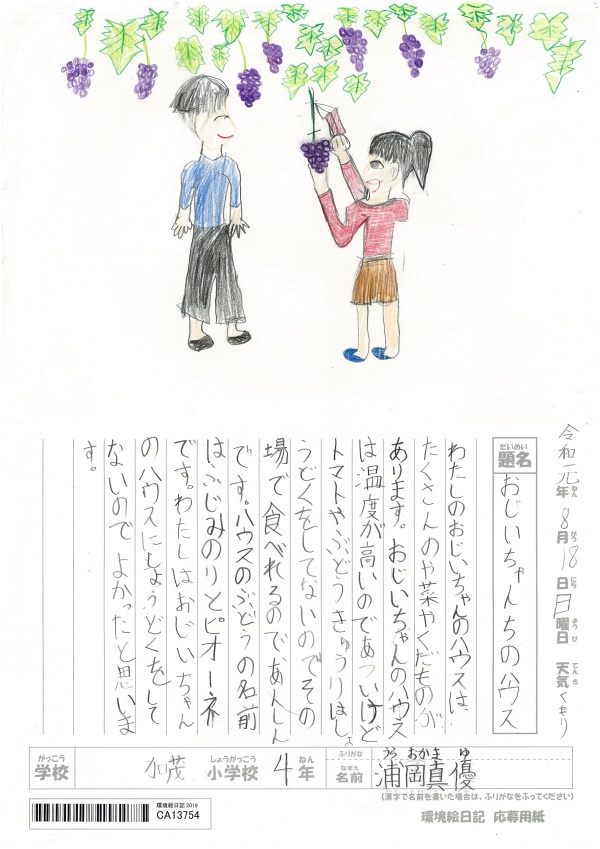 令和元年8月18日日曜日 天気くもり
ねん がつ にち ようび てんき
だいめい
題名 おじいちゃんちのハウス
わたしのおじいちゃんのハウスは、
たくさんのや菜やくだものが
あります。おじいちゃんのハウス
は温度が高いのであついけど
トマトやぶどうきゅうりはしょ
うどくをしてないのでその
場で食べれるのであんしん
です。ハウスのぶどうの名前
はふじみのりとピオーネ
です。わたしはおじいちゃん
のハウスにしょうどくをして
ないのでよかったと思いま
す。
がっこう しょうがっこう ねん ふりがな うら おかま ゆ
学校 加茂 小学校 4年 なまえ 名前 浦岡真優
(漢字で名前を書いた場合は、ふりがなをふってください)
環境絵日記 2019
CA13754
環境絵日記 応募用紙